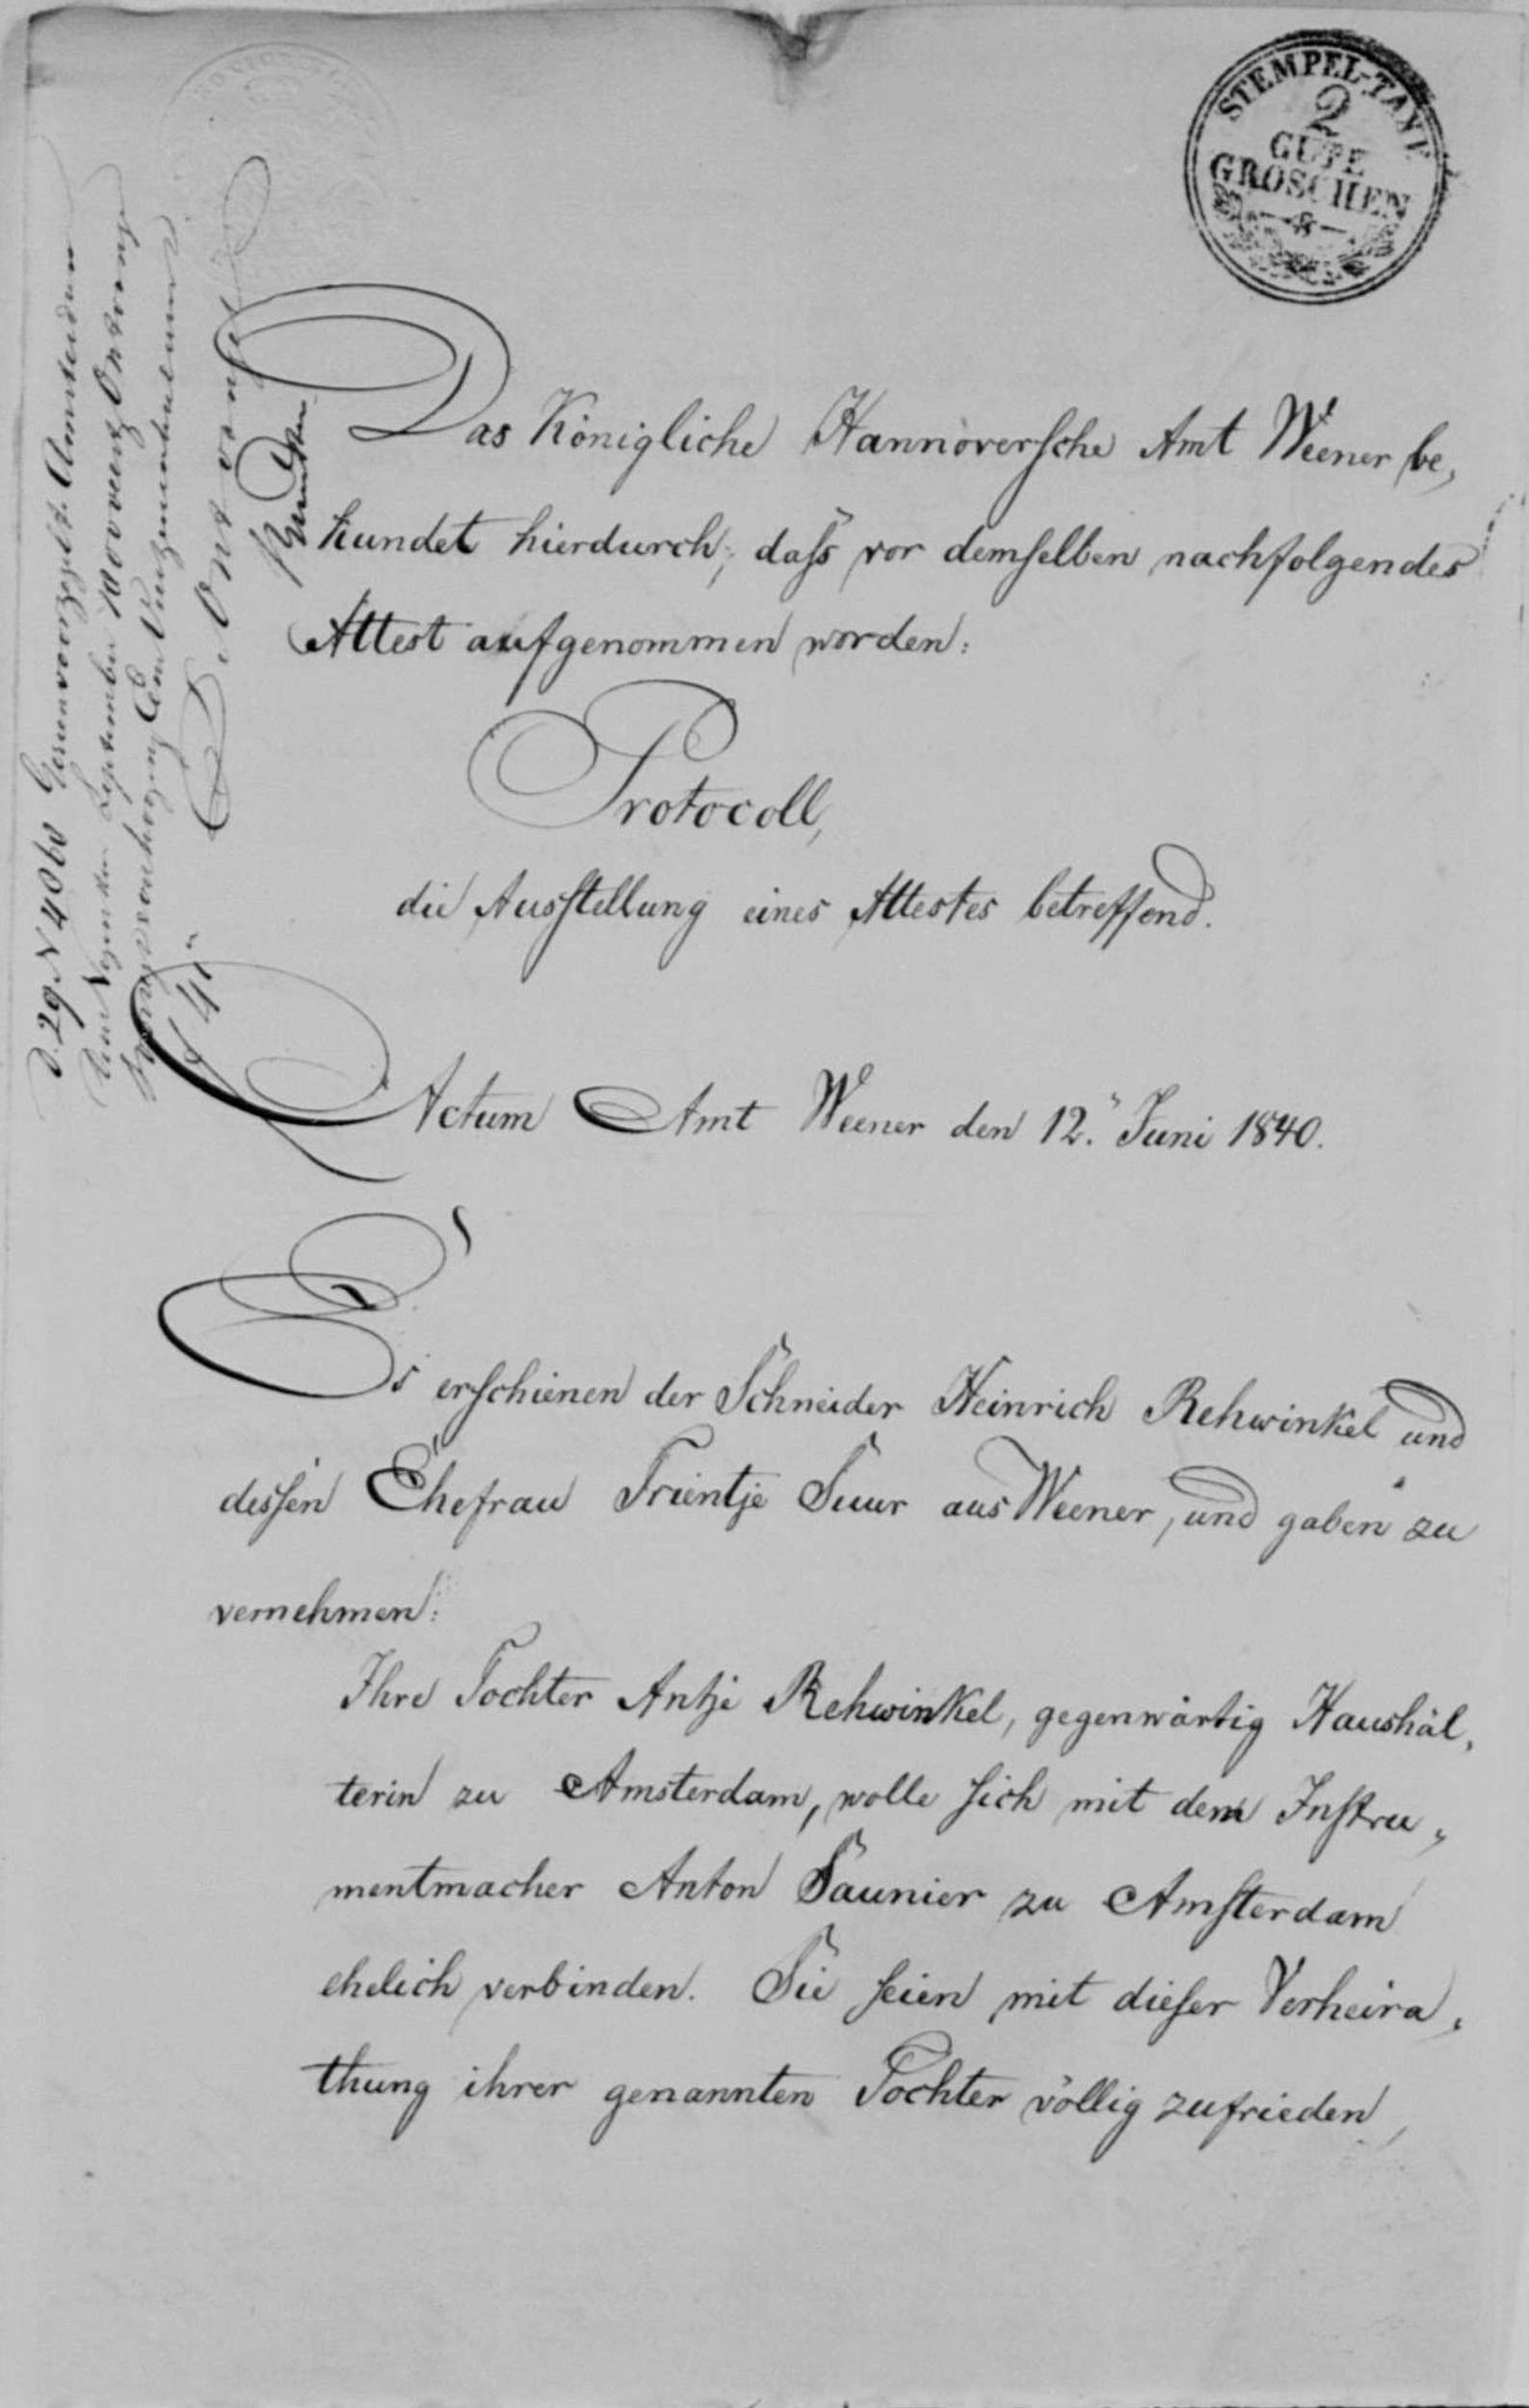 STEMPEL-TAXE
2
GUTE
GROSCHEN
Das Königliche Hannöversche Amt Weener be,
kundet hierdurch, daſs vor demselben nachfolgendes
Attest aufgenommen worden:
Protocoll,
die Ausstellung eines Attestes betreffend.
Actum Amt Weener den 12. Juni 1840.
Es erschienen der Schneider Heinrich Rehwinkel und
dessen Ehefrau Trientje Suur aus Weener, und gaben zu
vernehmen:
Ihre Tochter Antje Rehwinkel, gegenwärtig Haushäl,
terin zu Amsterdam, wolle sich mit dem Instru,
mentmacher Anton Saunier zu Amsterdam
ehelich verbinden. Sie seien mit dieser Verheira,
thung ihrer genannten Tochter völlig zufrieden,
D. 29 N 4060 Amsterdam
September 1800 veertig Ontvang
De Ontvanger